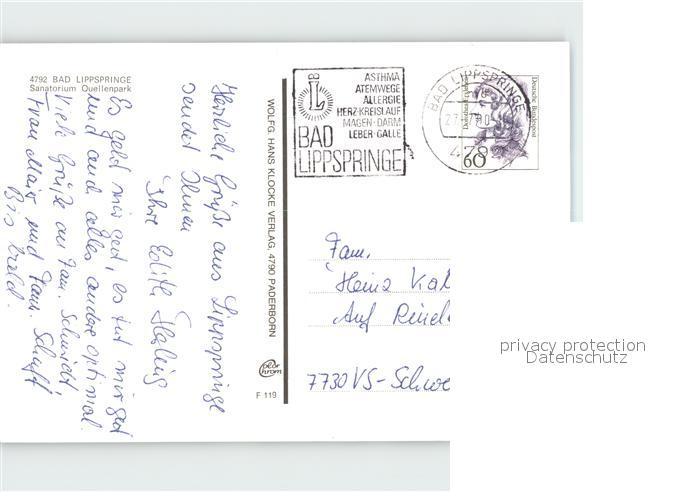 4792 BAD LIPPSPRINGE
Sanatorium Quellenpark
Herzliche Grüße aus Lippspringe
sendet Ihnen
Ihre Edith
Es geht mir gut, es tut mir gut
und auch alles andere optimal.
Viele Grüße an Fam. Schmidt,
Frau Maier und Fam.
Bis bald.
WOLFG. HANS KLOCKE VERLAG, 4790 PADERBORN
F 119
LB
ASTHMA
ATEMWEGE
ALLERGIE
HERZ·KREISLAUF
MAGEN·DARM
LEBER·GALLE
BAD
LIPPSPRINGE
BAD LIPPSPRINGE
Deutsche Bundespost
60
Fam.
Heinz
Auf
7730 VS-Schwe
privacy protection
Datenschutz